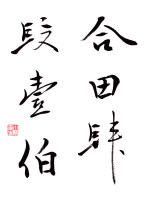 合田肆
段壹伯